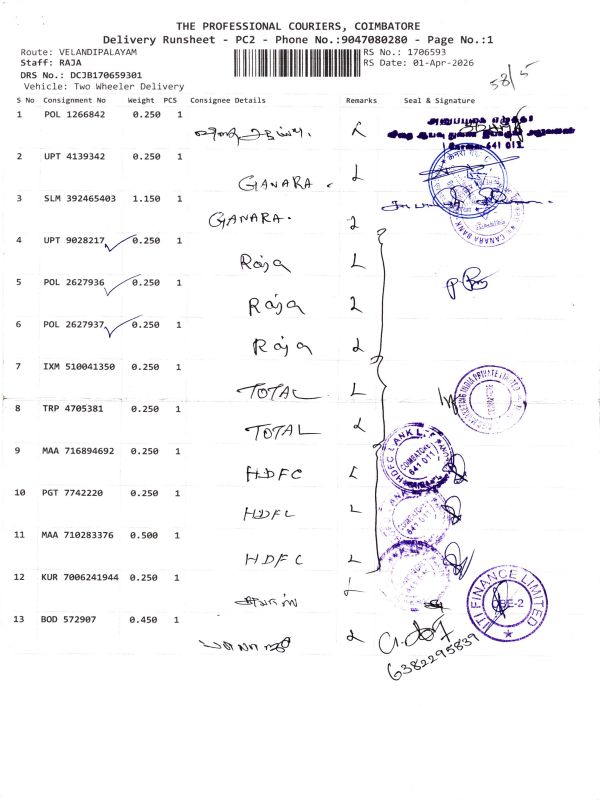 THE PROFESSIONAL COURIERS, COIMBATORE
Delivery Runsheet - PC2 - Phone No.:9047080280 - Page No.:1
Route: VELANDIPALAYAM RS No.: 1706593
Staff: RAJA RS Date: 01-Apr-2026
DRS No.: DCJB170659301
Vehicle: Two Wheeler Delivery
58/5
S No Consignment No Weight PCS Consignee Details Remarks Seal & Signature
1 POL 1266842 0.250 1 L
641 011
2 UPT 4139342 0.250 1 CANARA. L
3 SLM 392465403 1.150 1 CANARA. L
CANARA BANK
4 UPT 9028217 0.250 1 Raja L
5 POL 2627936 0.250 1 Raja L
6 POL 2627937 0.250 1 Raja L
7 IXM 510041350 0.250 1 TOTAL L
INDIA PRIVATE LIMITED
8 TRP 4705381 0.250 1 TOTAL L
9 MAA 716894692 0.250 1 HDFC L
HDFC BANK L
COIMBATORE
641 011
10 PGT 7742220 0.250 1 HDFC L
11 MAA 710283376 0.500 1 HDFC L
12 KUR 7006241944 0.250 1 L
ITI FINANCE LIMITED
CBE-2
13 BOD 572907 0.450 1 L
6382295839